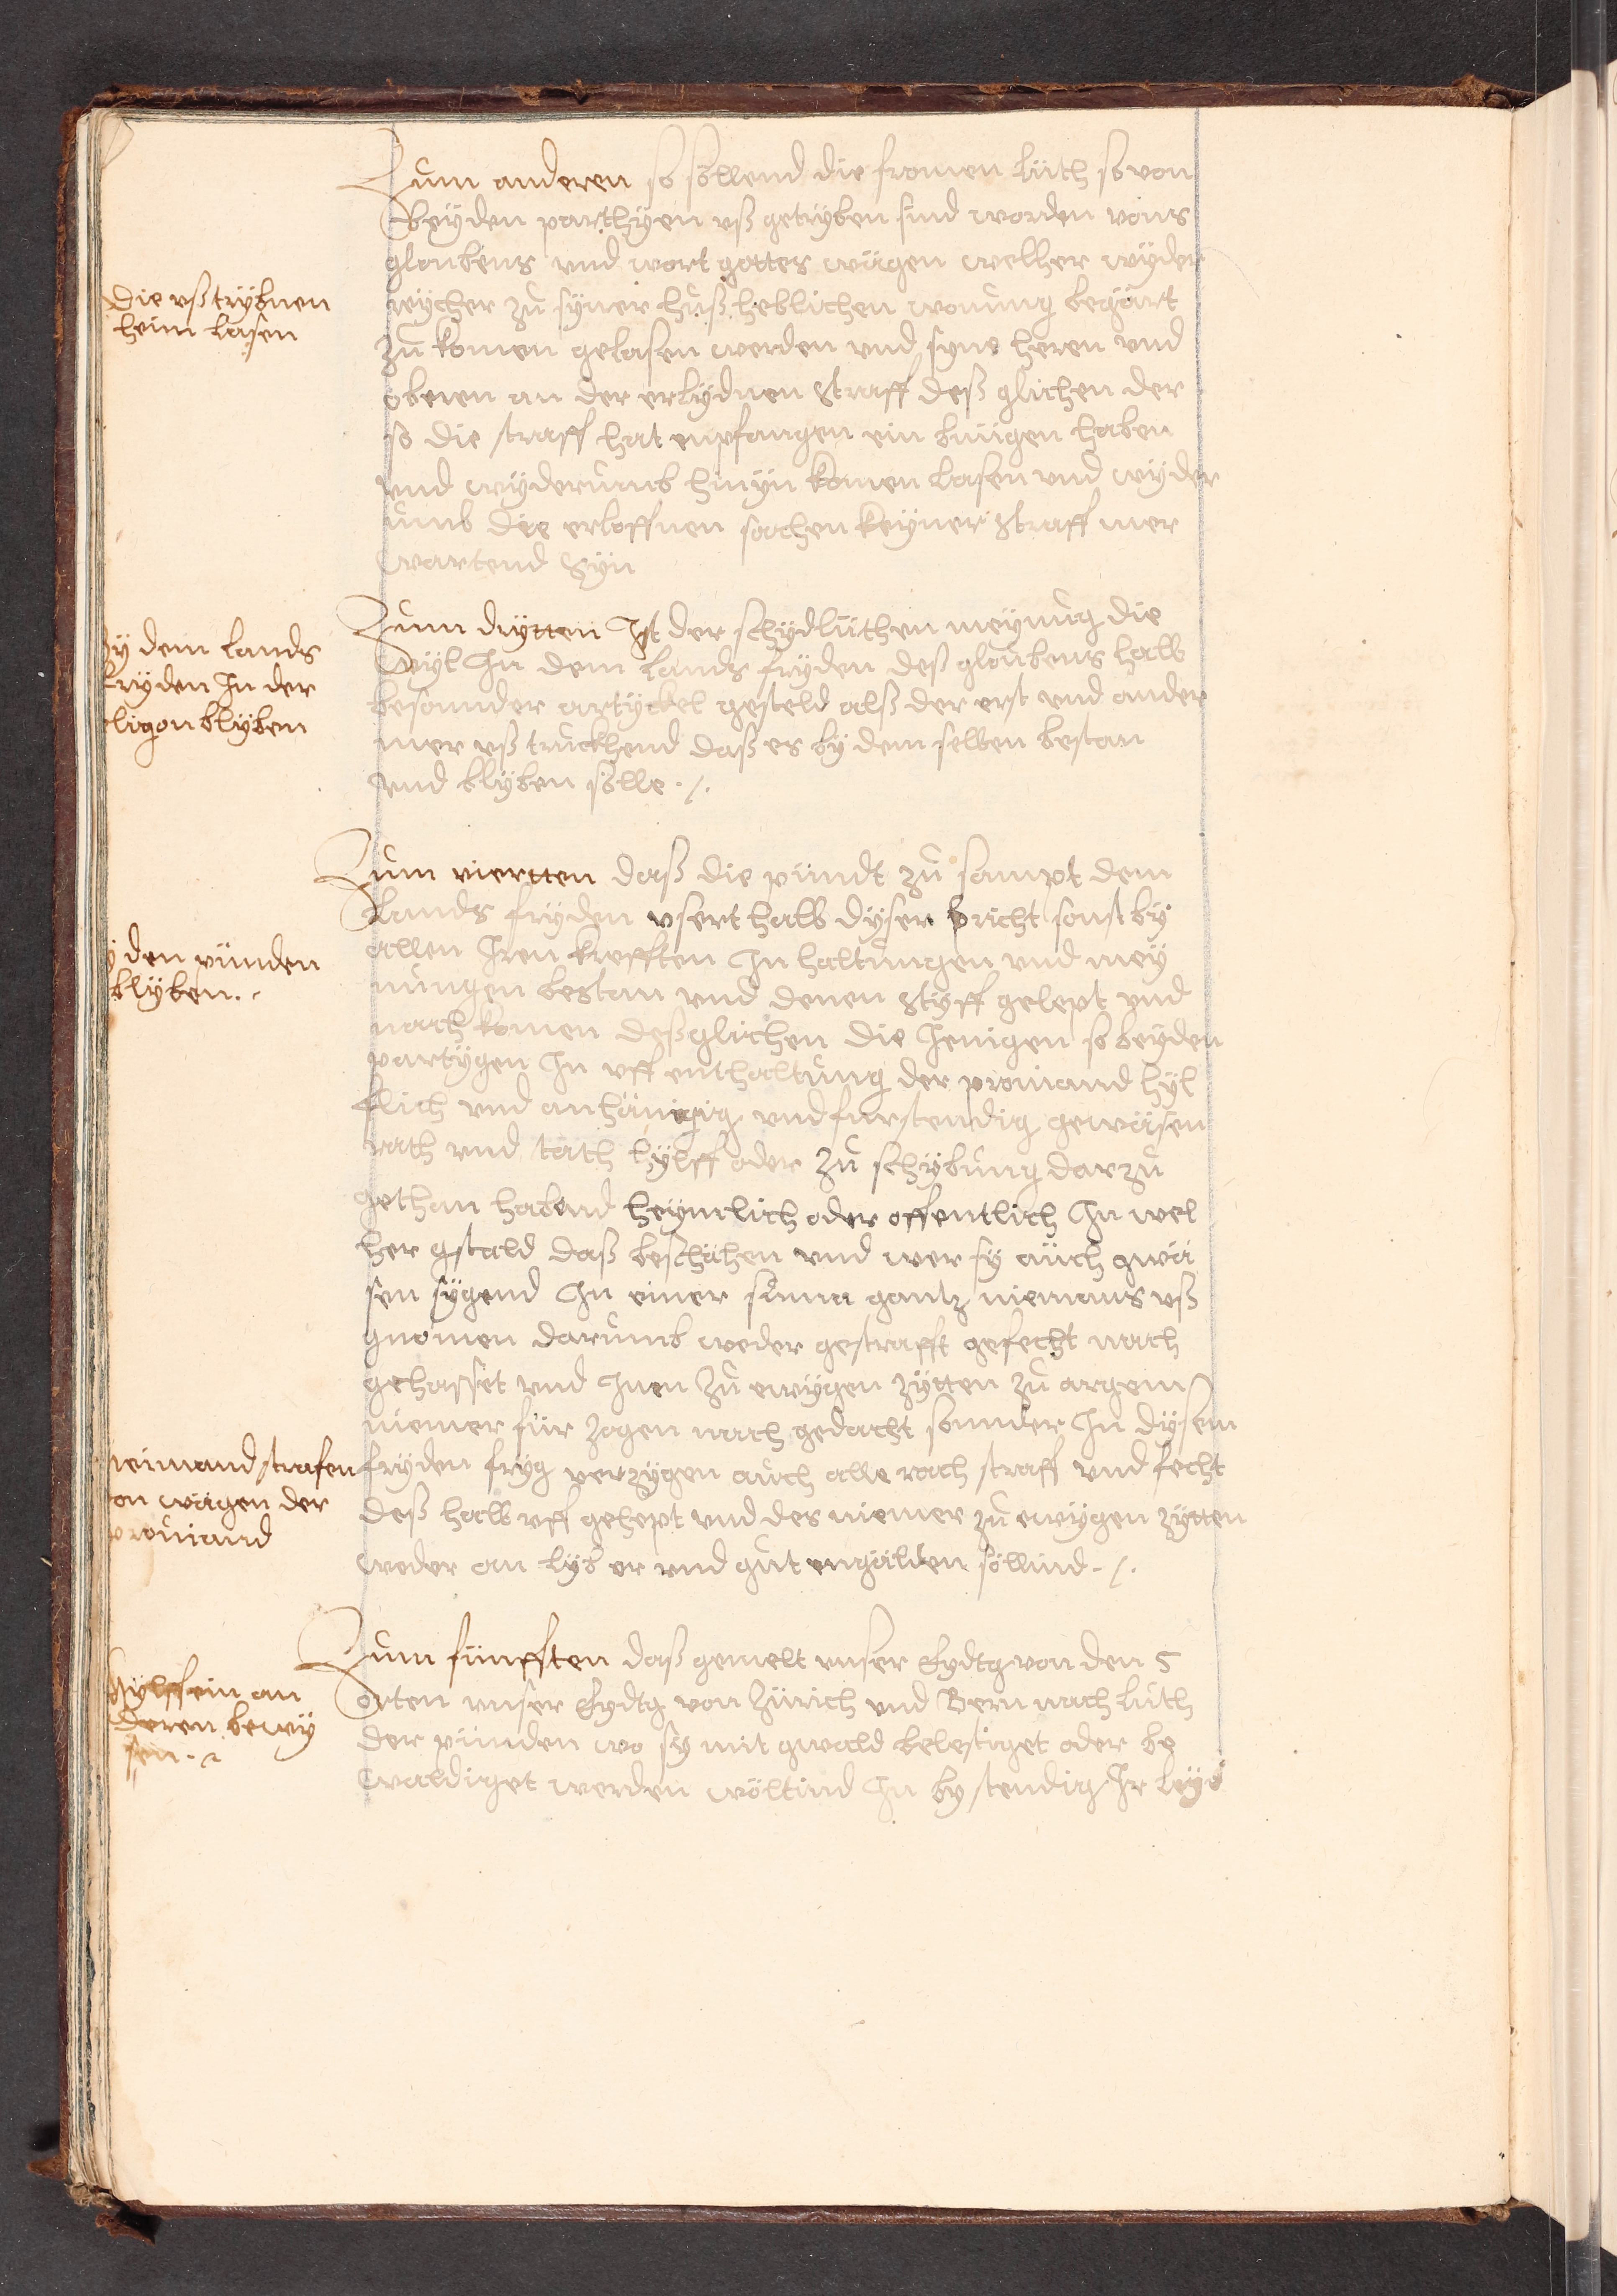 Zum anderen so söllend die fromen lüth so von
beÿden parthÿen vß getrÿben sind worden von's
gloubens vnd wort gottes wägen welher wÿder
zu sÿner huß heblichen wonung begärt
zu komen gelasen werden vnd sÿne heren vnd
oberen an der erlÿdnen straff deß glichen der
so die straff hat enpfangen ein benügen haben
vnd wÿderumb hinÿn komen lasen vnd wÿder
umb die erloffnen sachen keÿner straff mer
wartend sÿn
die vßtrÿbnen
heim lasen
Zum drÿtten Ist der schÿdlüthen meÿnung die
wÿl In dem lands frÿden deß gloubens halb
besonnder artÿckel gesteld alß der erst vnd ander
mer vß truckhend daß es bÿ dem selben bestan
vnd blÿben sölle ./.
bÿ dem lands
frÿden In der
eligon blÿben
Zum viertten daß die pündt zu sampt dem
lands frÿden vsert halb dÿser bricht sonst bÿ
allen Iren krefften In haltungen vnd meÿ
nungen bestan vnd denen stÿff gelept vnd
nach komen deßglichen die Jenigen so beÿden
partÿgen In vff enthaltung der profiand hÿl
flich vnd anhängig vnd furstendig gewäsen
rath vnd tath hÿlff oder zu schÿbung darzu
gethan habend heÿmlich oder offentlich In wel
her gstald daß beschähen vnd wer sÿ auch gwä
sen sÿgend In einer suma gantz niemans vß
gnomen darumb weder gestrafft gefecht nach
gehasset vnd Inen zu ewÿgen zÿtten zu argem
niemer für zogen nach gedacht sonnder In dÿsem
frÿden frÿg verzÿgen auch alle rach straff vnd fecht
deß halb vff gehept vnd des niemer zu ewÿgen zÿtten
weder an lÿb er vnd gut engälden söllind ./.
ÿ den pünden
blÿben.
neimand strafen
on wägen der
profiand
Zum fünfften daß gemelt vnser Eydtg von den 5
orten vnser Eydtg von Zürich vnd Bern nach luth
der pünden wo sÿ mit gwald belestiget oder be
waldiget werden wöltind In bÿ stendig Ir lÿb
hÿlff ein an
deren bewÿ
sen.